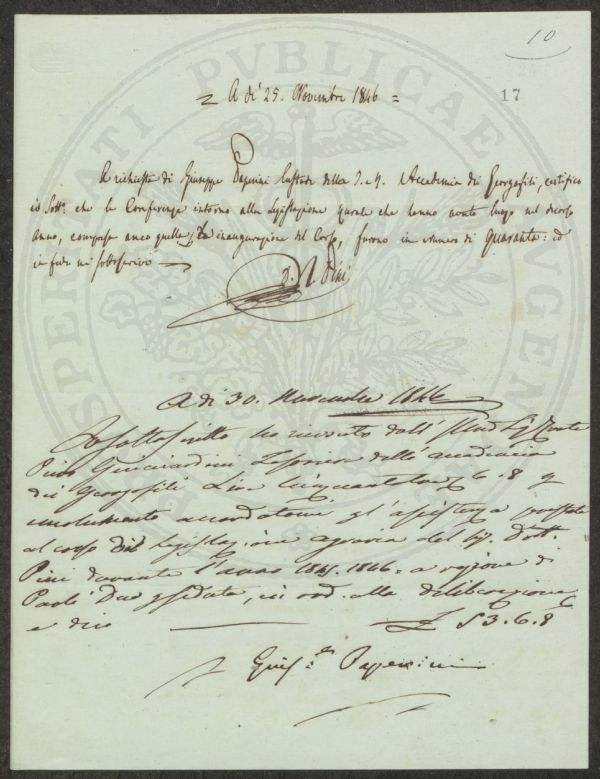 10
17
PROSPERITATI PVBLICAE AVGENDAE
= A dì 25. Novembre 1846 =
A richiesta di Giuseppe Papini Custode della I. e R. Accademia dei Georgofili, certifico
io Sott.o che le Conferenze intorno alla Legislazione rurale che hanno avuto luogo nel decorso
anno, compresa anco quella inaugurazione del Corso, furono in numero di Quaranta: ed
in fede mi sottoscrivo
Pini
A dì 30. Novembre 1846
Io sottoscritto ho ricevuto dall' Sig Conte
Piero Guicciardini Tesoriere dell' accademia
dei Georgofili Lire Cinquantatre 6. 8 p
emolumento accordatomi p l'assistenza prestata
al corso di Legislazione agraria del Sig. Dott.
Pini durante l'anno 1845. 1846 = a ragione di
Paoli Due p seduta, in ord. alla deliberazione
e dico £ 53. 6. 8
Papini